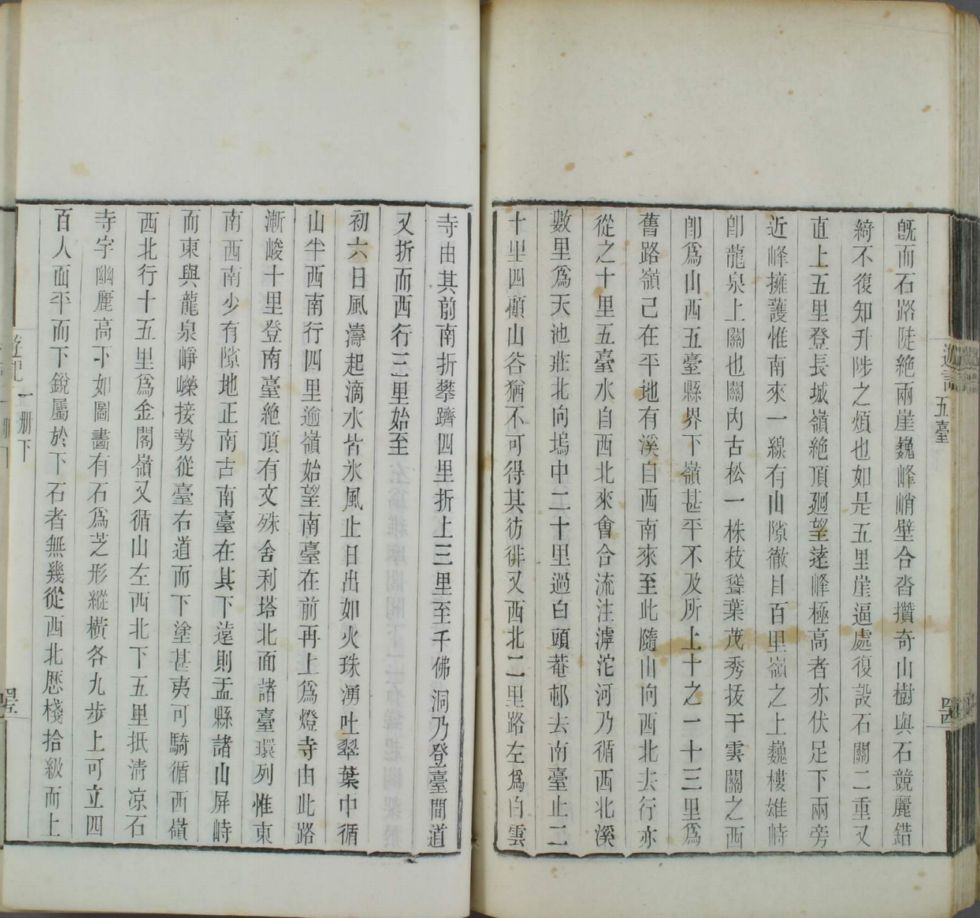 遊記 五臺
既而石路陡絶兩崖巍峰峭壁合沓攢奇山樹與石競麗錯
綺不復知升陟之煩也如是五里崖逼處復設石關二重又
直上五里登長城嶺絶頂廻望遠峰極高者亦伏足下兩旁
近峰擁護惟南來一線有山隙徹目百里嶺之上巍樓雄峙
卽龍泉上關也關內古松一株枝聳葉茂秀拔干雲關之西
卽爲山西五臺縣界下嶺甚平不及所上十之一十三里爲
舊路嶺已在平地有溪自西南來至此隨山向西北去行亦
從之十里五臺水自西北來會合流注滹沱河乃循西北溪
數里爲天池莊北向塢中二十里過白頭菴邨去南臺止二
十里四顧山谷猶不可得其彷彿又西北二里路左爲白雲
寺由其前南折攀躋四里折上三里至千佛洞乃登臺間道
又折而西行三里始至
初六日風濤起滴水皆氷風止日出如火珠湧吐翠葉中循
山半西南行四里逾嶺始望南臺在前再上爲燈寺由此路
漸峻十里登南臺絶頂有文殊舍利塔北面諸臺環列惟東
南西南少有隙地正南古南臺在其下遠則盂縣諸山屏峙
而東與龍泉崢嶸接勢從臺右道而下塗甚夷可騎循西嶺
西北行十五里爲金閣嶺又循山左西北下五里抵清凉石
寺宇幽麗高下如圖畫有石爲芝形縱橫各九步上可立四
百人面平而下銳屬於下石者無幾從西北歷棧拾級而上
遊記 一册下